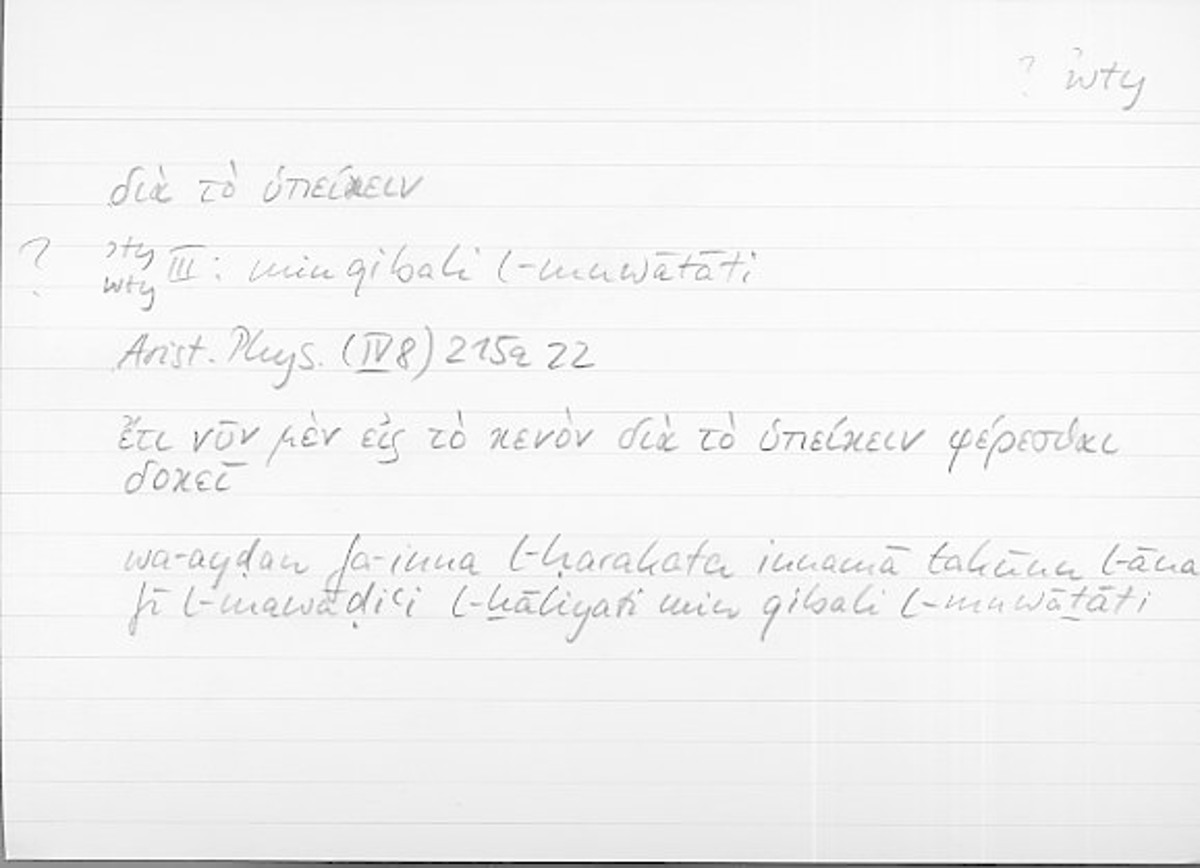 ? wty
διὰ τὸ ὑπείκειν
? ʾty
wty III: min qibali l-muwātāti
Arist. Phys. (IV 8) 215a 22
ἔτι νῦν μὲν εἰς τὸ κενὸν διὰ τὸ ὑπείκειν φέρεσθαι
δοκεῖ
wa-ayḍan fa-inna l-ḥarakata innamā takūnu l-āna
fī l-mawāḍiʿi l-ḫāliyati min qibali l-muwāṯāti